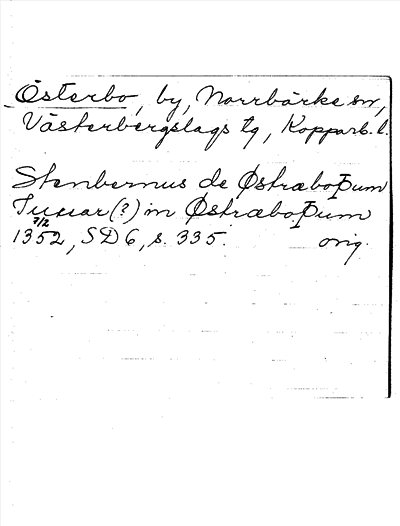 Österbo, by, Norrbärke sn,
Västerbergslags tg, Kopparb. l.
Stenbernus de ØstræboÞum
Tunar(?) in ØstræboÞum
7/2
1352, SD 6, s. 335. orig.